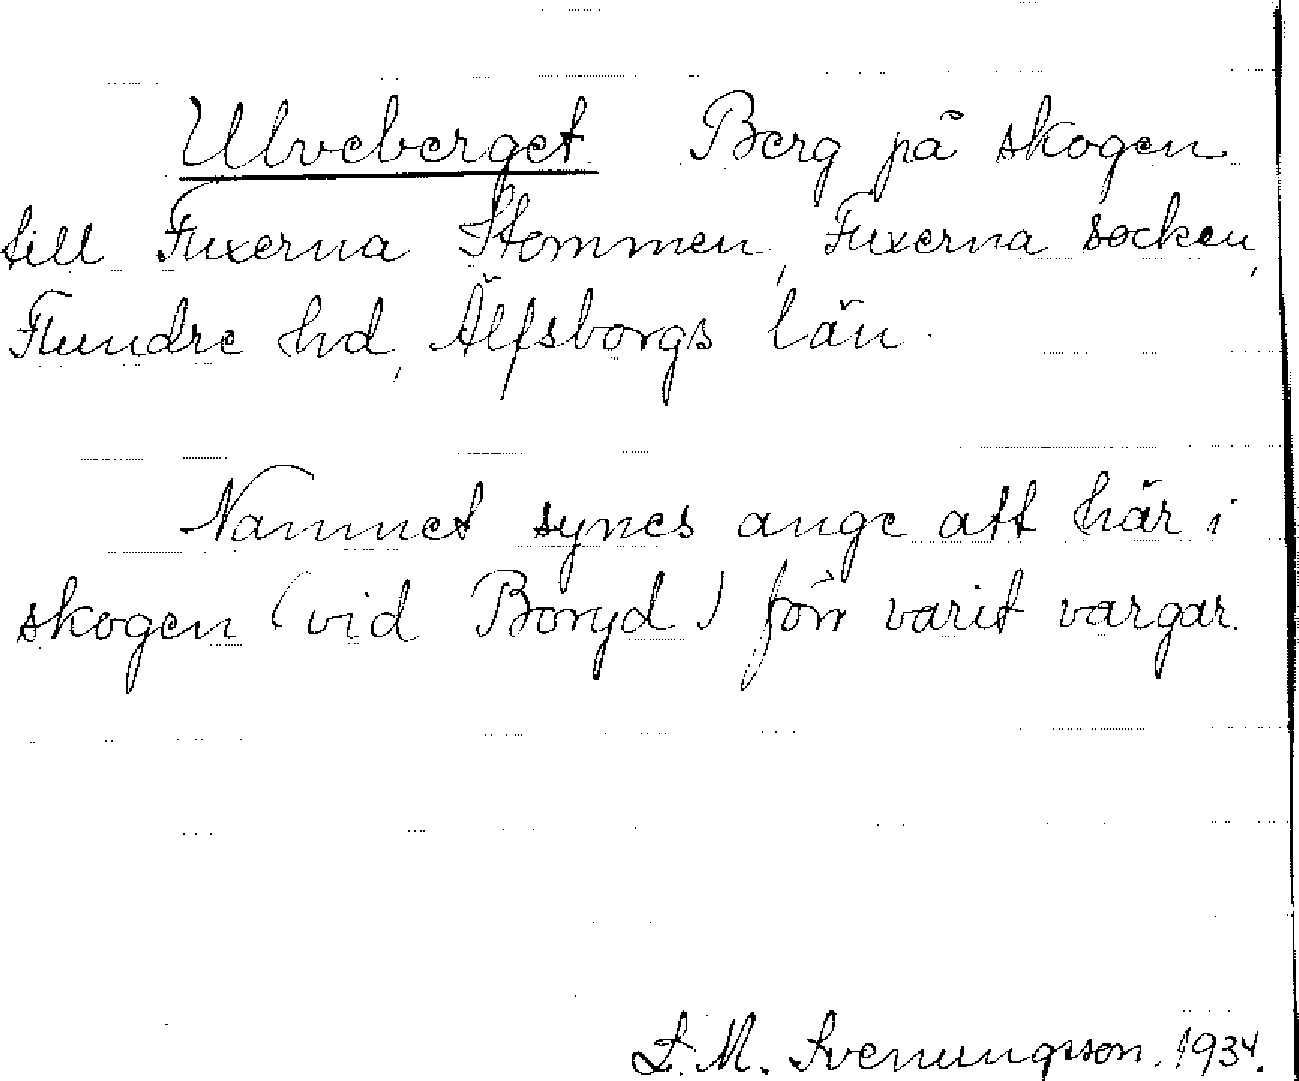 Ulveberget Berg på skogen
till Fuxerna Stommen, Fuxerna socken,
Flundre hd, Älfsborgs län.
Namnet synes ange att här i
skogen (vid Boryd) förr varit vargar.
L. M. Svenungsson. 1934.